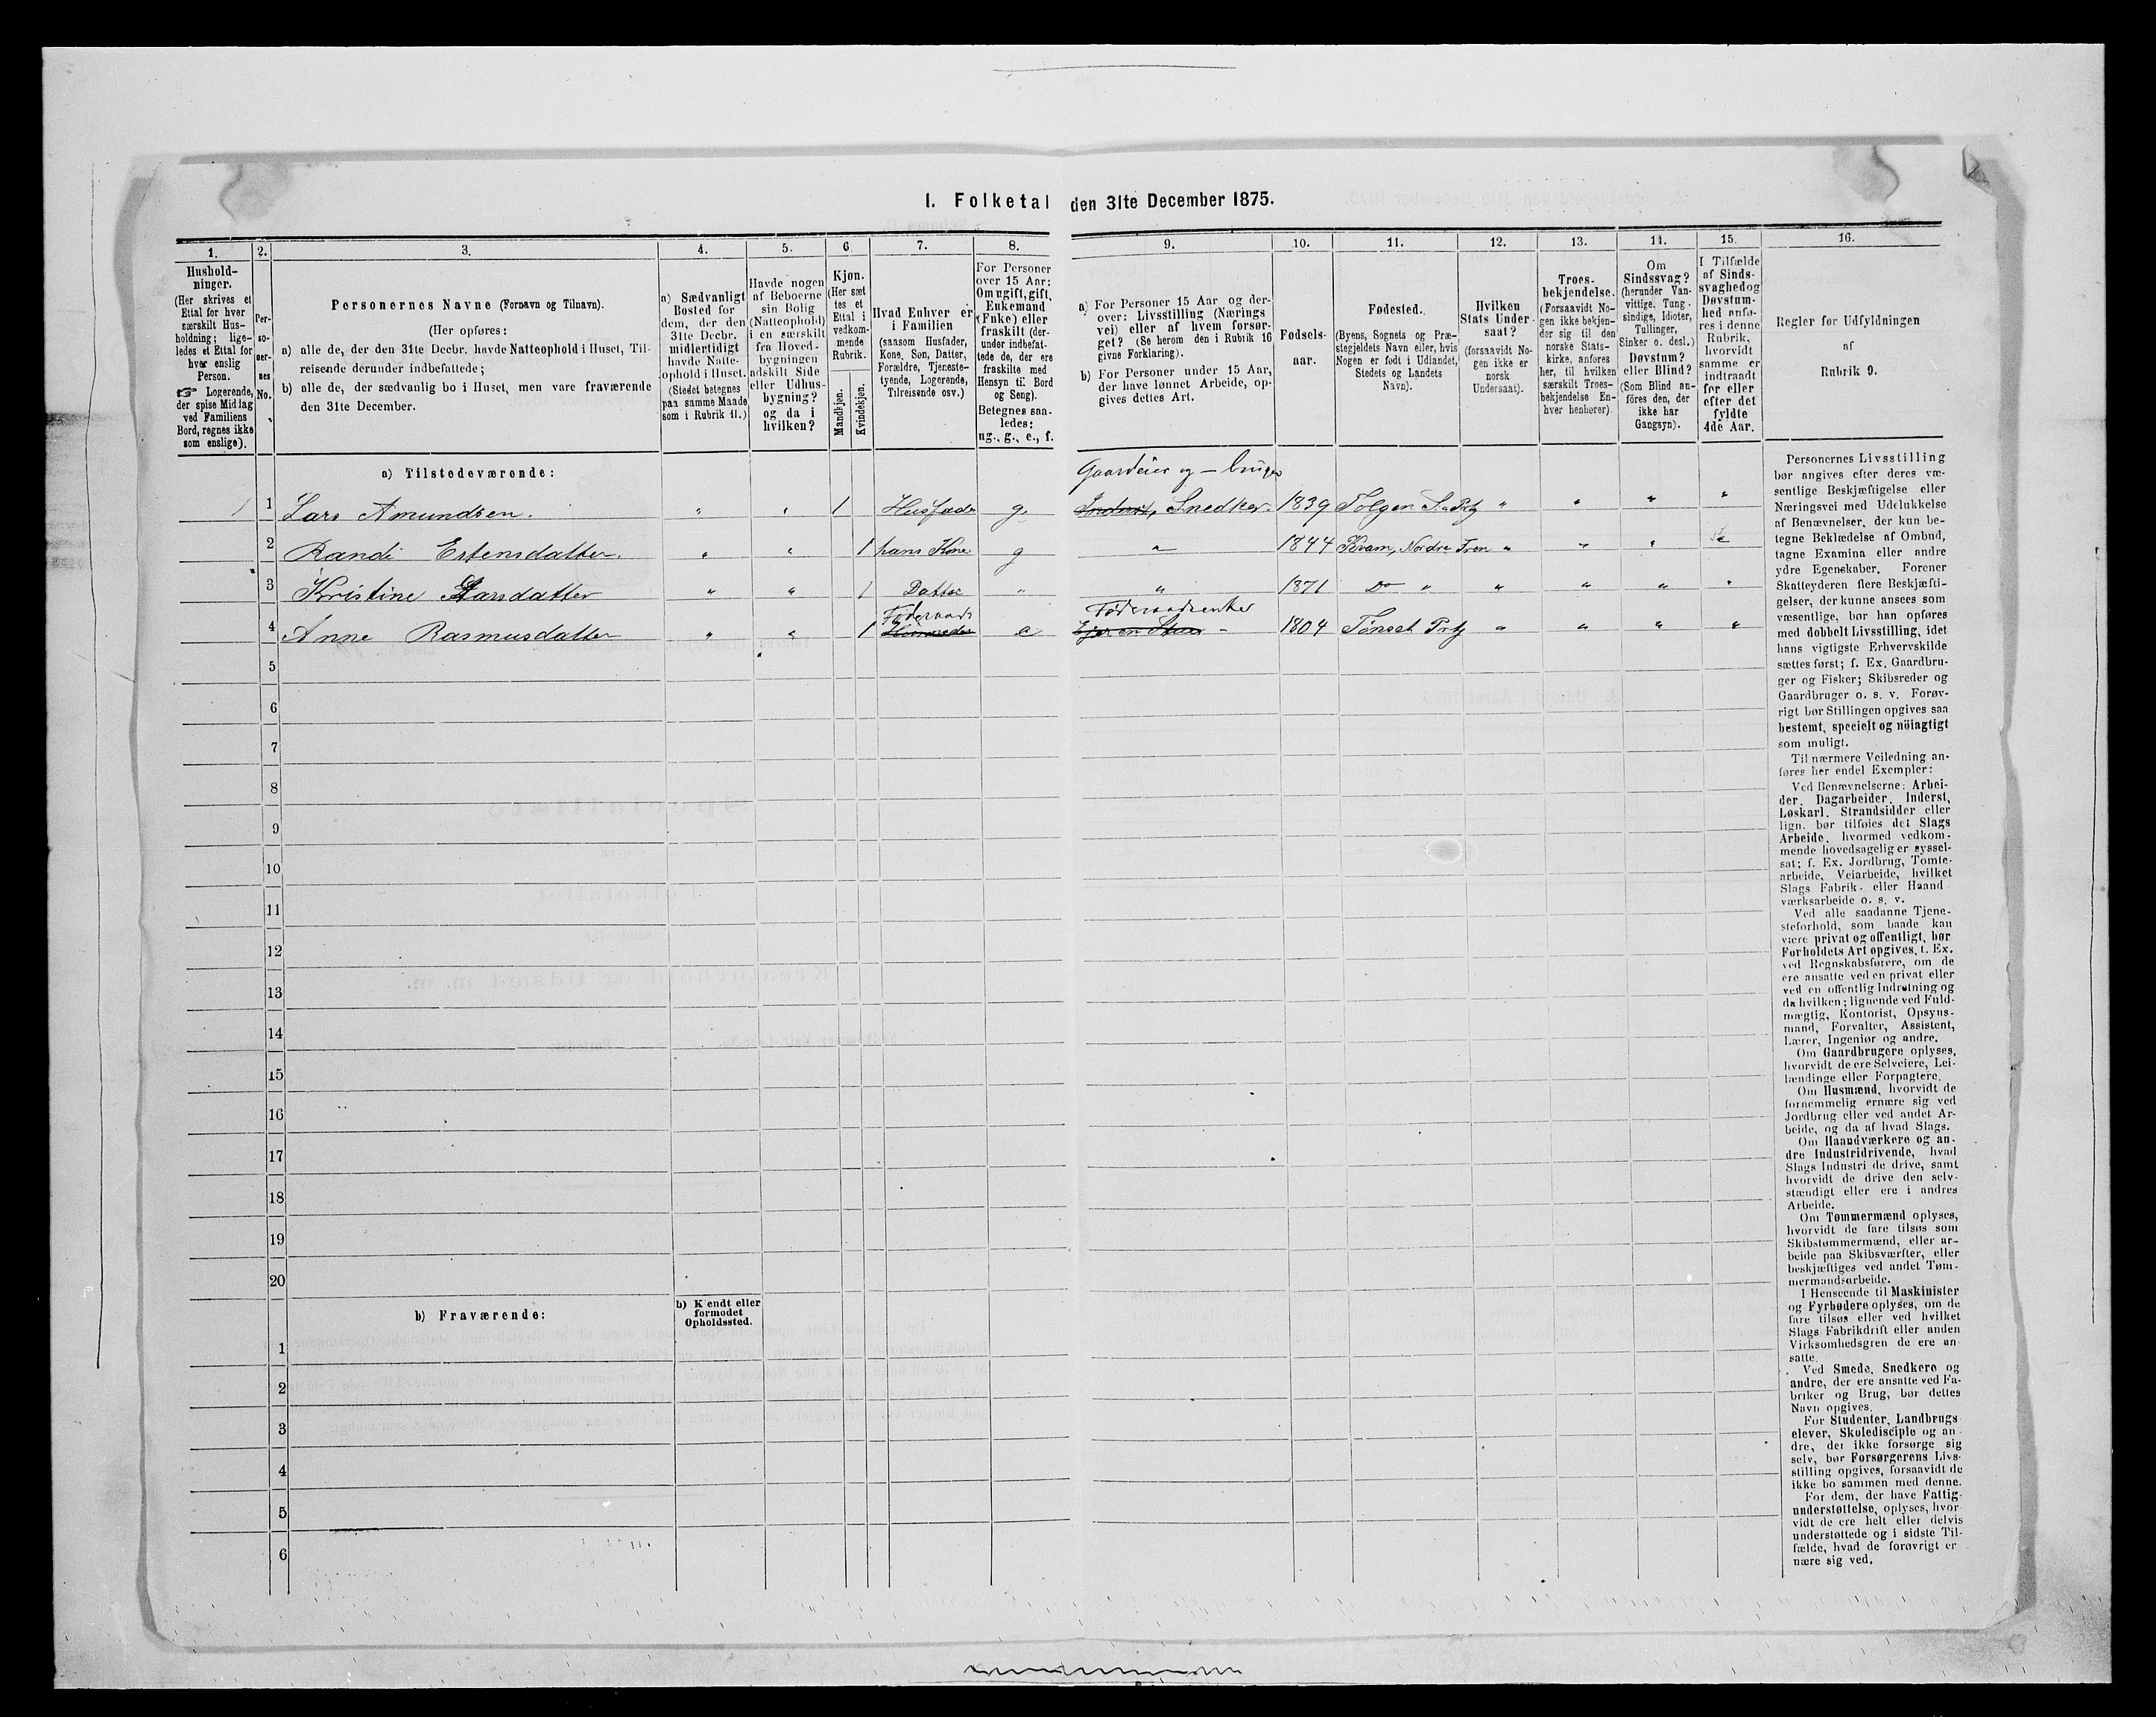 I. Folketal den 31te December 1875.
1. 2. 3. 4. 5. 6. 7. 8. 9. 10. 11. 12. 13. 14. 15. 16.
Hushold-
ninger.
(Her skrives et
Ettal for hver
særskilt Hus-
holdning; lige-
ledes et Ettal for
hver enslig
Person.
☞ Logerende,
der spise Middag
ved Familiens
Bord, regnes ikke
som enslige).
Per-
so-
ner-
nes
No.
Personernes Navne (Fornavn og Tilnavn).
(Her opføres:
a) alle de, der den 31te Decbr. havde Natteophold i Huset, Til-
reisende derunder indbefattede;
b) alle de, der sædvanlig bo i Huset, men vare fraværende
den 31te December.
a) Sædvanligt
Bosted for
dem, der den
31te Decbr.
midlertidigt
havde Natte-
ophold i Huset.
(Stedet betegnes
paa samme Maade
som i Rubrik 11.)
Havde nogen
af Beboerne
sin Bolig
(Natteophold)
i en særskilt
fra Hoved-
bygningen
adskilt Side
eller Udhus-
bygning?
og da i
hvilken?
Kjøn.
(Her sæt
tes et
Ettal i
vedkom-
mende
Rubrik.
Mandkjøn.
Kvindekjøn.
Hvad Enhver er
i Familien
(saasom Husfader,
Kone, Søn, Datter,
Forældre, Tjeneste-
tyende, Logerende,
Tilreisende osv.)
For Personer
over 15 Aar:
Om ugift, gift,
Enkemand
(Enke) eller
fraskilt (der-
under indbefat-
tede de, der ere
fraskilte med
Hensyn til Bord
og Seng).
Betegnes saa-
ledes:
ug., g., e., f.
a) For Personer 15 Aar og der-
over: Livsstilling (Nærings
vei) eller af hvem forsør-
get? (Se herom den i Rubrik 16
givne Forklaring).
b) For Personer under 15 Aar,
der have lønnet Arbeide, op-
gives dettes Art.
Fødsels-
aar.
Fødested.
(Byens, Sognets og Præ-
stegjeldets Navn eller, hvis
Nogen er født i Udlandet,
Stedets og Landets
Navn).
Hvilken
Stats Under-
saat?
(forsaavidt No-
gen ikke er
norsk
Undersaat).
Troes-
bekjendelse.
(Forsaavidt No-
gen ikke bekjen-
der sig til den
norske Stats-
kirke, anføres
her, til hvilken
særskilt Troes-
bekjendelse En-
hver henhører).
Om
Sindssvag?
(herunder Van-
vittige, Tung-
sindige, Idioter,
Tullinger,
Sinker o. desl.)
Døvstum?
eller Blind?
(Som Blind an-
föres den, der
ikke har
Gangsyn).
I Tilfælde
af Sinds-
svaghed og
Døvstum-
hed anfø-
res i denne
Rubrik,
hvorvidt
samme er
indtraadt
før eller
efter det
fyldte
4de Aar.
Regler for Udfyldningen
af
Rubrik 9.
a) Tilstedeværende:
Gaardeier og - bruger
1 1 Lars Amundsen. " " 1 Husfader g. Snedker. 1839 Tolgen " " " "
2 Randi Estensdatter. " " 1 hans Kone g " 1844 Kvam, Nordre Fron " " " "
3 Kristine Larsdatter " " 1 Datter " " 1871 Do " " " " "
Føderaads Føderaadsenke
4 Anne Rasmusdatter " " 1 e - 1804 Tønset Prtg " " " "
5
6
7
8
9
10
11
12
13
14
15
16
17
18
19
20
b) Fraværende:
b) Kjendt eller
formodet
Opholdssted.
1
2
3
4
5
6
Personernes Livsstilling
bør angives efter deres væ-
sentlige Beskjæftigelse eller
Næringsvei med Udelukkelse
af Benævnelser, der kun be-
tegne Beklædelse af Ombud,
tagne Examina eller andre
ydre Egenskaber. Forener
Skatteyderen flere Beskjæfti-
gelser, der kunne ansees som
væsentlige, bør han opføres
med dobbelt Livsstilling, idet
hans vigtigste Erhvervskilde
sættes først; f. Ex. Gaardbru-
ger og Fisker; Skibsreder og
Gaardbruger o. s. v. Forøv-
rigt bør Stillingen opgives saa
bestemt, specielt og nöiagtigt
som muligt.
Til nærmere Veiledning an-
føres her endel Exempler:
Ved Benævnelserne: Arbei-
der, Dagarbeider, Inderst,
Løskarl, Strandsidder eller
lign. bør tilføies det Slags
Arbeide, hvormed vedkom-
mende hovedsagelig er syssel-
sat; f. Ex. Jordbrug, Tomte-
arbeide, Veiarbeide, hvilket
Slags Fabrik- eller Haand-
værksarbeide o. s. v.
Ved alle saadanne Tjene-
steforhold, som baade kan
være privat og offentligt, bør
Forholdets Art opgives, t. Ex.
ved Regnskabsførere, om de
ere ansatte ved en privat eller
ved en offentlig Indretning og
da hvilken; lignende ved Fuld-
mægtig, Kontorist, Opsyns-
mand, Forvalter, Assistent,
Lærer, Ingeniør og andre.
Om Gaardbrugere oplyses,
hvorvidt de ere Selveiere, Lei-
lændinge eller Forpagtere.
Om Husmænd, hvorvidt de
fornemmelig ernære sig ved
Jordbrug eller ved andet Ar-
beide, og da af hvad Slags.
Om Haandværkere og an-
dre Industridrivende, hvad
Slags Industri de drive, samt
hvorvidt de drive den selv-
stændigt eller ere i andres
Arbeide.
Om Tømmermænd oplyses,
hvorvidt de fare tilsøs som
Skibstømmermænd, eller ar-
beide paa Skibsværfter, eller
beskjæftiges ved andet Tøm-
mermandsarbeide.
I Henseende til Maskinister
og Fyrbødere oplyses, om de
fare tilsøs eller ved hvilket
Slags Fabrikdrift eller anden
Virksomhedsgren de ere an-
satte.
Ved Smede, Snedkere og
andre, der ere ansatte ved Fa-
briker og Brug, bør dettes
Navn opgives.
For Studenter, Landbrugs-
elever, Skoledisciple og an-
dre, der ikke forsørge sig
selv, bør Forsørgerens Livs-
stilling opgives, forsaavidt de
ikke bo sammen med denne.
For dem, der have Fattig-
understøttelse, oplyses, hvor-
vidt de ere helt eller delvis
understøttede og i sidste Til-
fælde, hvad de forøvrigt er-
nære sig ved.